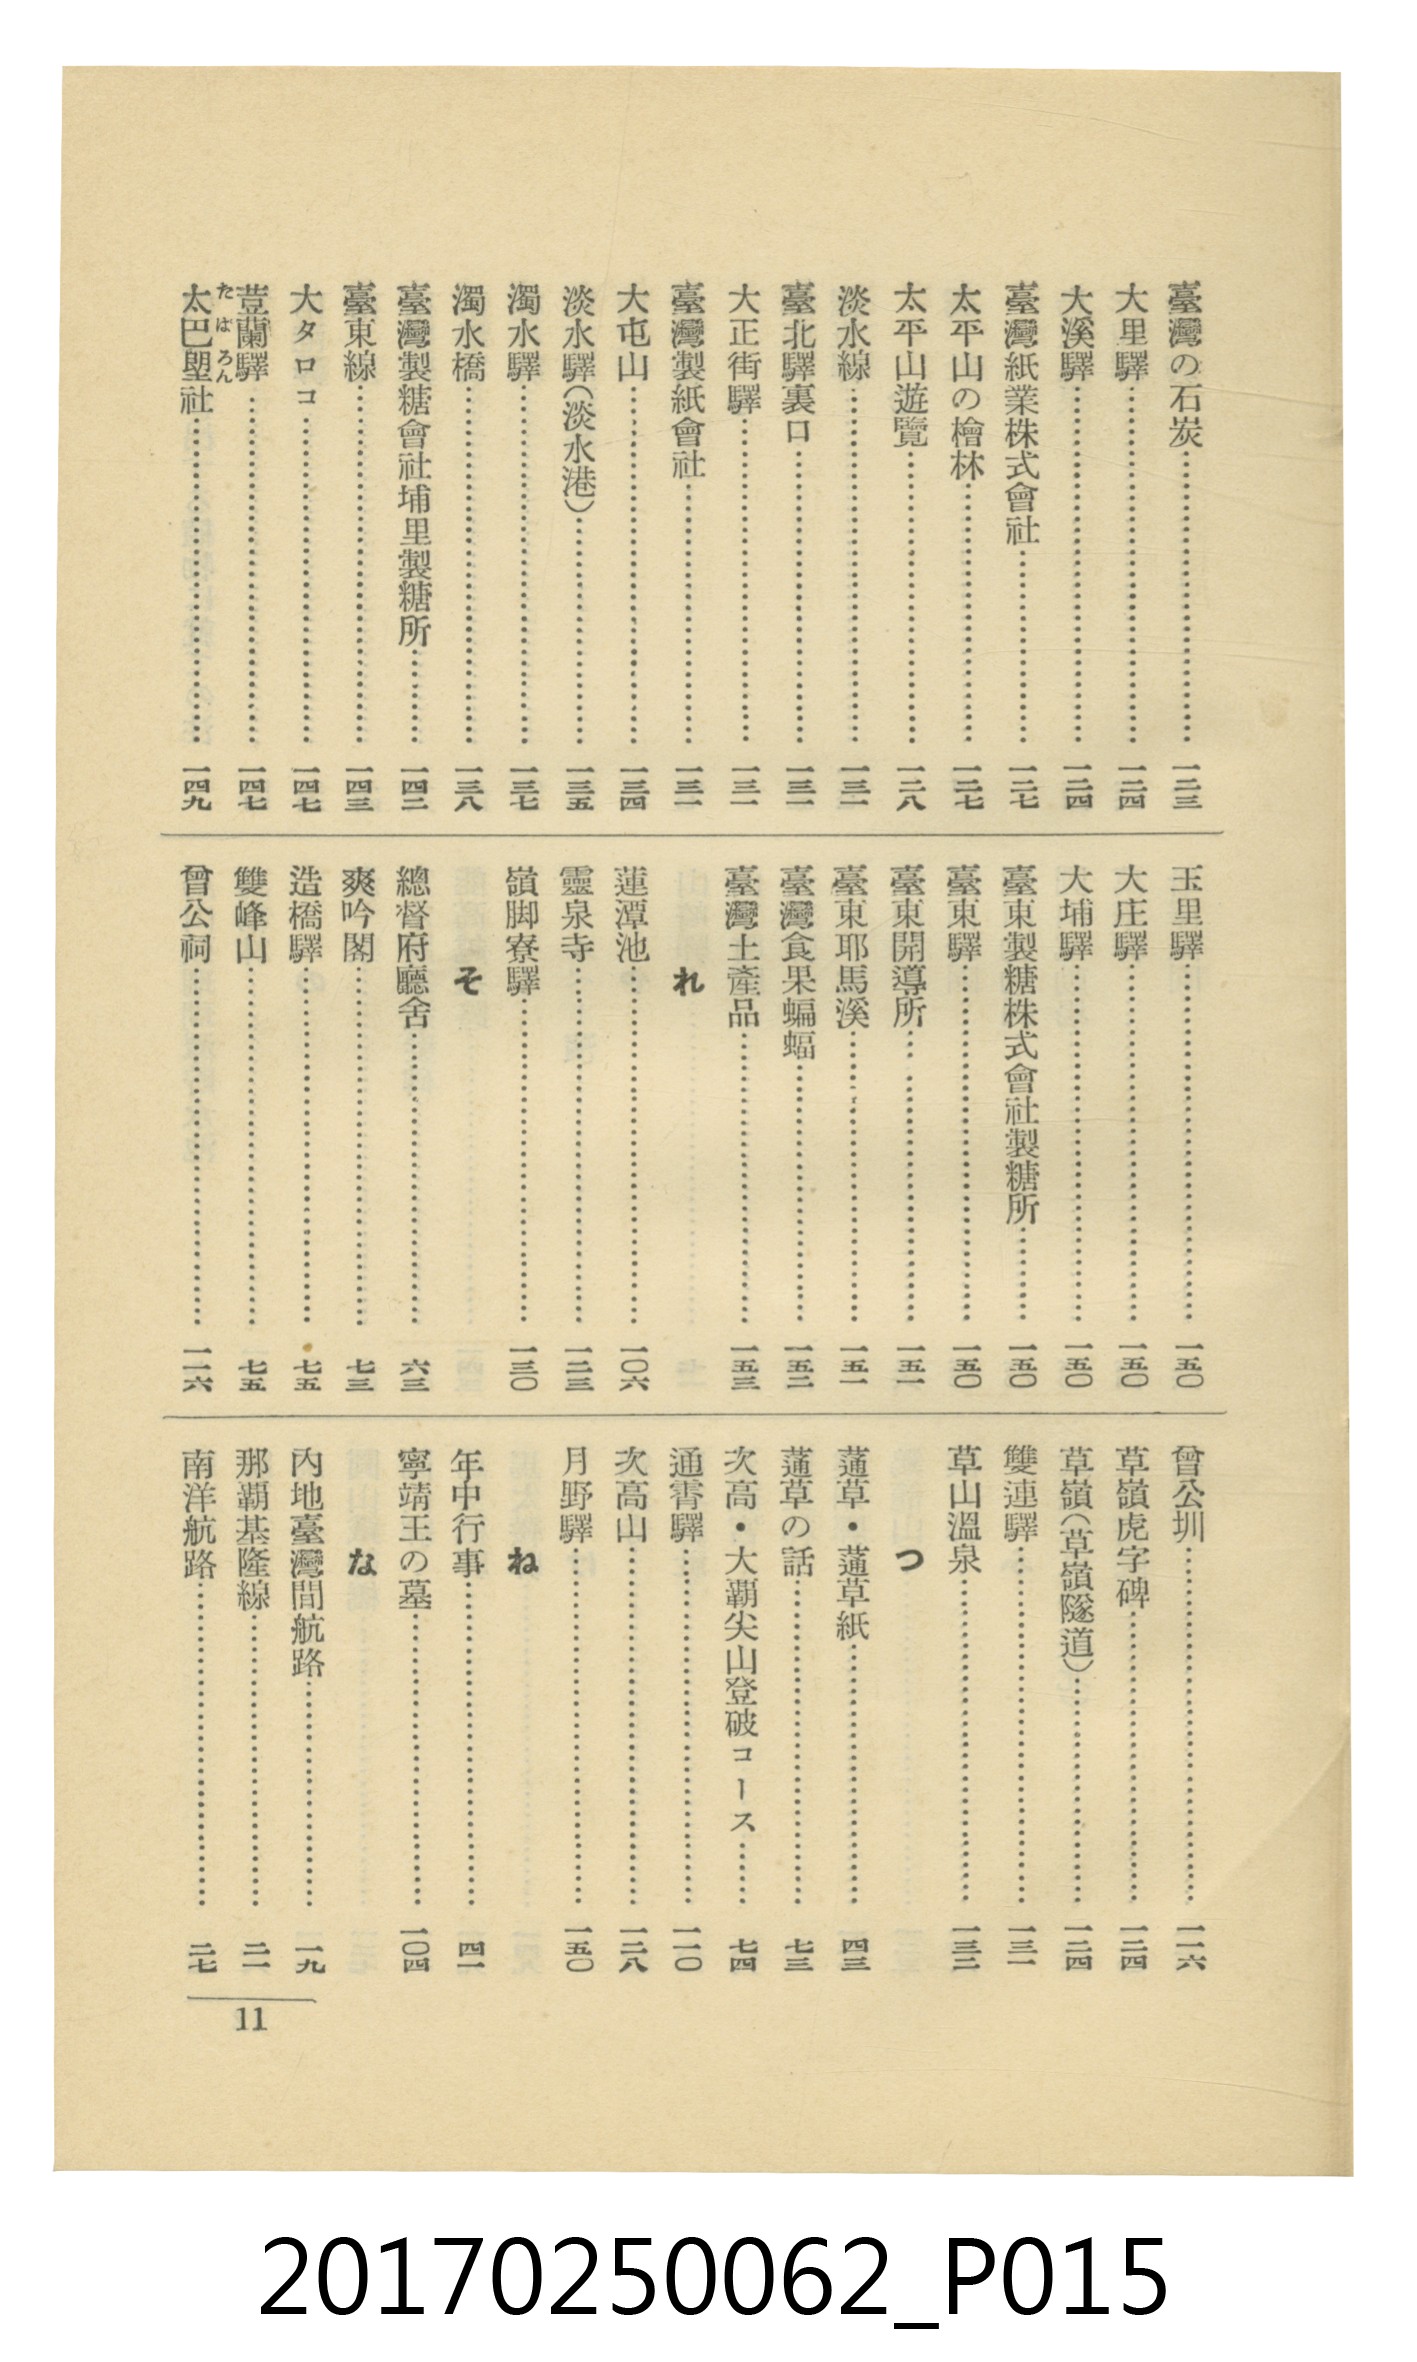 臺灣の石炭……一二三
大里驛……一二四
大溪驛……一二四
臺灣紙業株式會社……一二七
太平山の檜林……一二七
太平山遊覽……一二八
淡水線……一三一
臺北驛裏口……一三一
大正街驛……一三一
臺灣製紙會社……一三一
大屯山……一三四
淡水驛(淡水港)……一三五
濁水驛……一三七
濁水橋……一三八
臺灣製糖會社埔里製糖所……一四二
臺東線……一四三
大タロコ……一四七
荳蘭驛……一四七
たばろん
太巴塱社……一四九
玉里驛……一五〇
大庄驛……一五〇
大埔驛……一五〇
臺東製糖株式會社製糖所……一五〇
臺東驛……一五〇
臺東開導所……一五一
臺東耶馬溪……一五一
臺灣食果蝙蝠……一五二
臺灣土產品……一五三
れ
蓮潭池……一〇六
靈泉寺……一二三
嶺脚寮驛……一三〇
そ
總督府廳舍……六三
爽吟閣……七三
造橋驛……七五
雙峰山……七五
曾公祠……一一六
曾公圳……一一六
草嶺虎字碑……一二四
草嶺(草嶺隧道)……一二四
雙連驛……一三一
草山溫泉……一三二
つ
蓪草・蓪草紙……四三
蓪草の話……七三
次高・大覇尖山登破コース……七四
通霄驛……一一〇
次高山……一二八
月野驛……一五〇
ね
年中行事……四一
寧靖王の墓……一〇四
な
內地臺灣間航路……一九
那覇基隆線……二一
南洋航路……二七
11
20170250062_P015